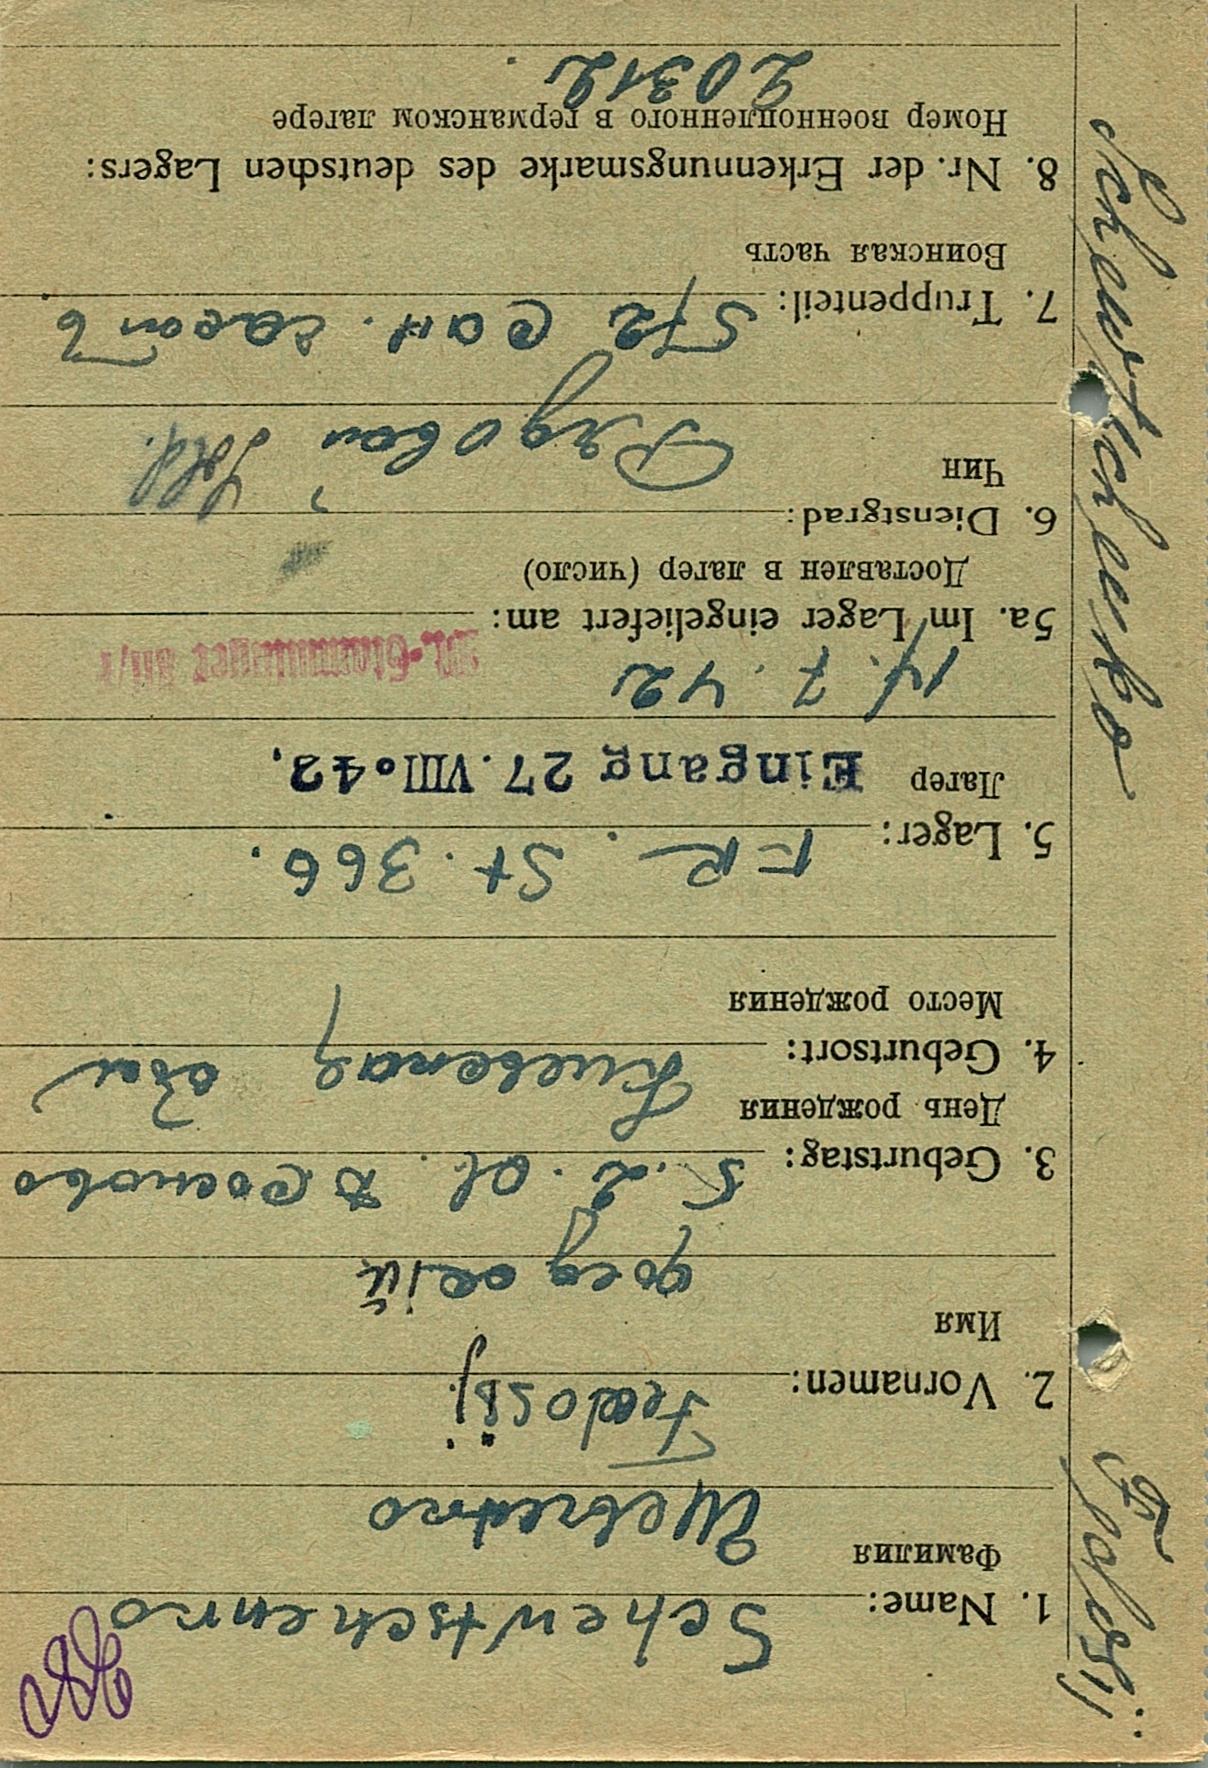 1. Name: Schewtschenko
Фамилия
Шевченко
2. Vornamen: Fedosij
Имя
федосій
3. Geburtstag: 5. 2. 01.
День рождения
4. Geburtsort:
Место рождения
5. Lager: F-R. St. 366.
Лагер Eingang 27. VIII. 42.
14. 7. 42
5a. Im Lager eingeliefert am:
Доставлен в лагер (число)
6. Dienstgrad: Sold.
Чин Рядовой
7. Truppenteil: 572 сан.
Воинская часть
8. Nr. der Erkennungsmarke des deutschen Lagers:
Номер военнопленного в германском лагере
20312.
Schewtschenko Fedosij